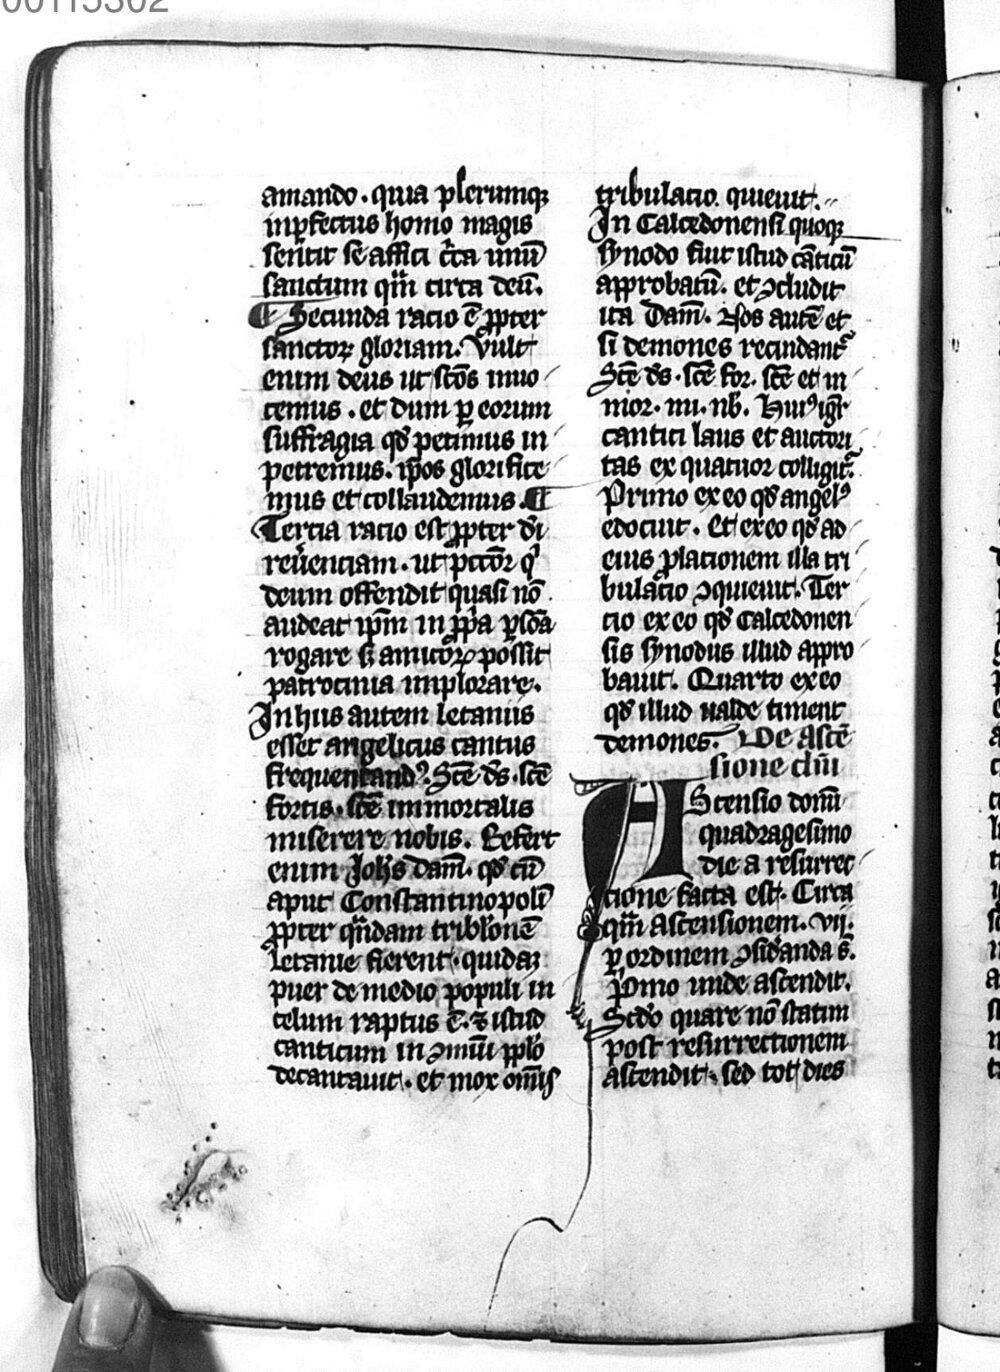 00115302
amando. quia plerumqꝫ
inp̄fectus homo magis
sentit se affici c̄ca unū
sanctum qm̄ circa deū.
¶ Secunda racio ē ꝓpter
sanctoꝝ gloriam. Vult
enim deus ut sc̄os inuo
cemus. et dum ꝑ eorum
suffragia qd̄ petimus in
petremus. ip̄os glorifice
mus et collaudemus. ¶
Tercia racio est ꝓpter dī
reūenciam. ut pcc̄or qͥ
deum offendit quasi nō
audeat ip̄m in ꝓp̄a ꝑsōa
rogare s; amicoꝝ possit
patrocinia implorare.
In hiis autem letaniis
esset angelicus cantus
frequentandꝰ. Sc̄e ds̄. sc̄e
fortis. sc̄e immortalis
miserere nobis. Refert
enim Joh̄s dam̄. qd̄ cū
aput Constantinopolī
ꝓpter qn̄dam tribl̄onē
letanie fierent. quidaꝫ
puer de medio populi in
celum raptus ē. ⁊ istud
canticum in ꝯmūi ppl̄o
decantauit. et mox om̄is
tribulacio. quieuit.
In Calcedonensi quoqꝫ
synodo fuit istud cāticū
approbatū. et ꝯcludit
ita Dam̄. Nos autē et
si demones recindant̄
Sc̄e ds̄. sc̄e for. sc̄e et in
mor. mi. nb̄. Huiꝰ igr̄
cantici laus et auctori
tas ex quatuor colligit̄.
Primo ex eo qd̄ angelꝰ
edocuit. Et ex eo qd̄ ad
eius ꝓlacionem illa tri
bulacio ꝯquieuit. Ter
cio ex eo qd̄ Calcedonen
sis synodus illud appro
bauit. Quarto ex eo
qd̄ illud ualde timent
demones. De ascē
sione dn̄i
AScensio domī
quadragesimo
die a resurrec
cione facta est. Circa
qm̄ ascensionem. vii.
ꝑ ordinem ꝯsid̄anda s̄.
Pͥmo unde ascendit.
Scd̄o quare nō statim
post resurrectionem
ascendit. sed tot dies